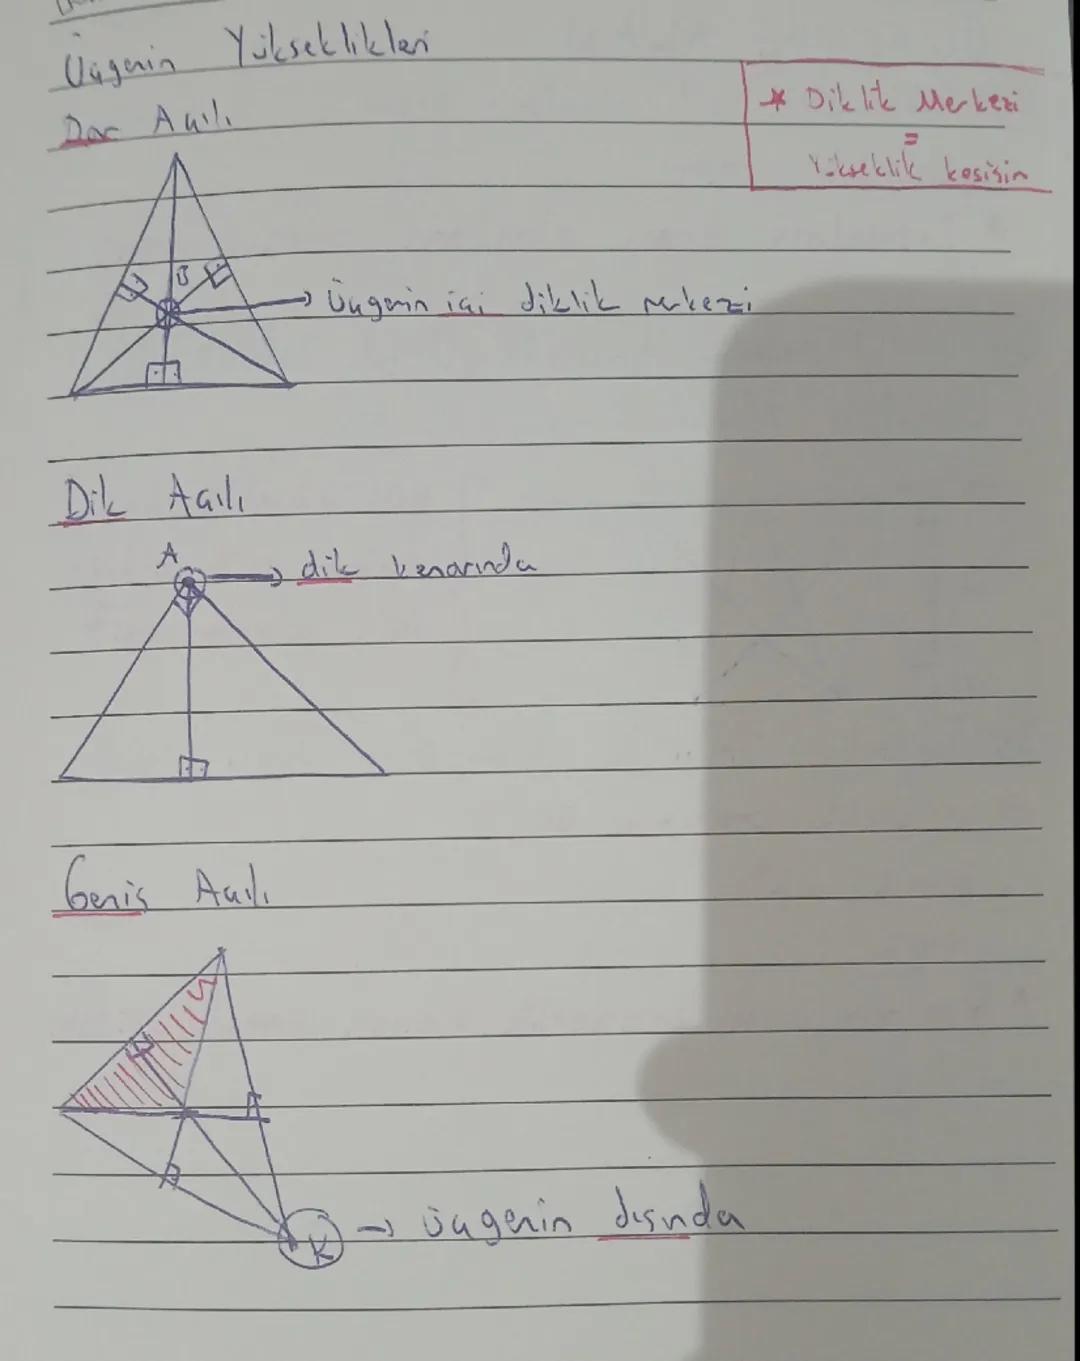 Üçgenin Yükseklikleri
* Diklik Merkezi
=
Yükseklik kesişin
Dar Açılı
B
→ Üçgenin içi diklik merkezi
Dik Açılı
A
→ dik kenarında
Geniş Açılı
K → üçgenin dışında